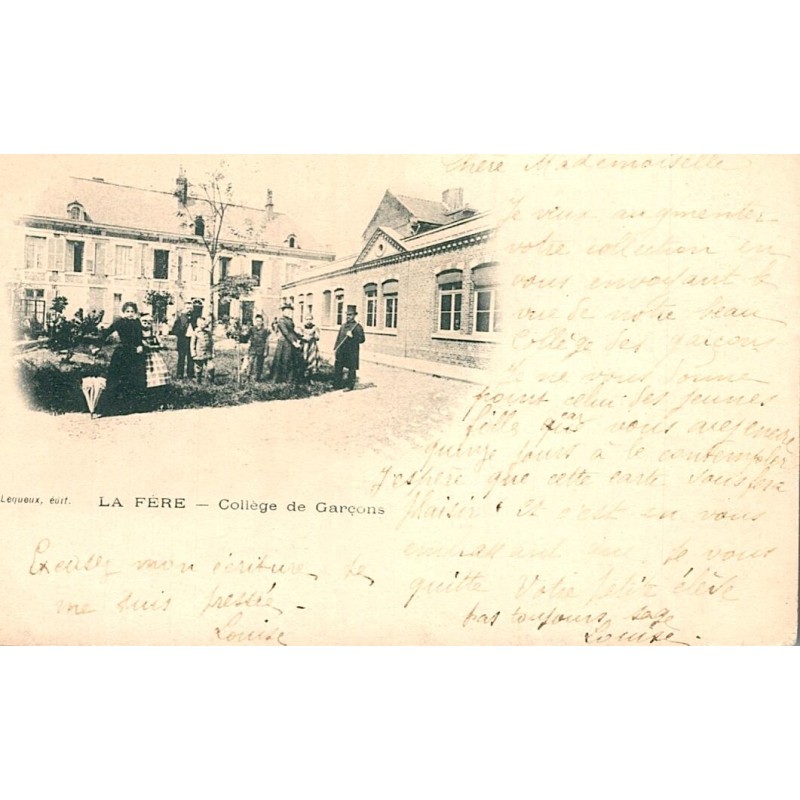 Chère Mademoiselle
Je veux augmenter
votre collection en
vous envoyant la
vue de notre beau
Collège des garçons
Je ne vous donne
point celui des jeunes
filles car vous avez encore
quinze jours à le contempler
J'espère que cette carte vous fera
plaisir. Et c'est en vous
embrassant que je vous
quitte Votre petite élève
pas toujours sage
Louise.
Lequeux, édit. LA FÈRE — Collège de Garçons
Excusez mon écriture je
me suis pressée.
Louise